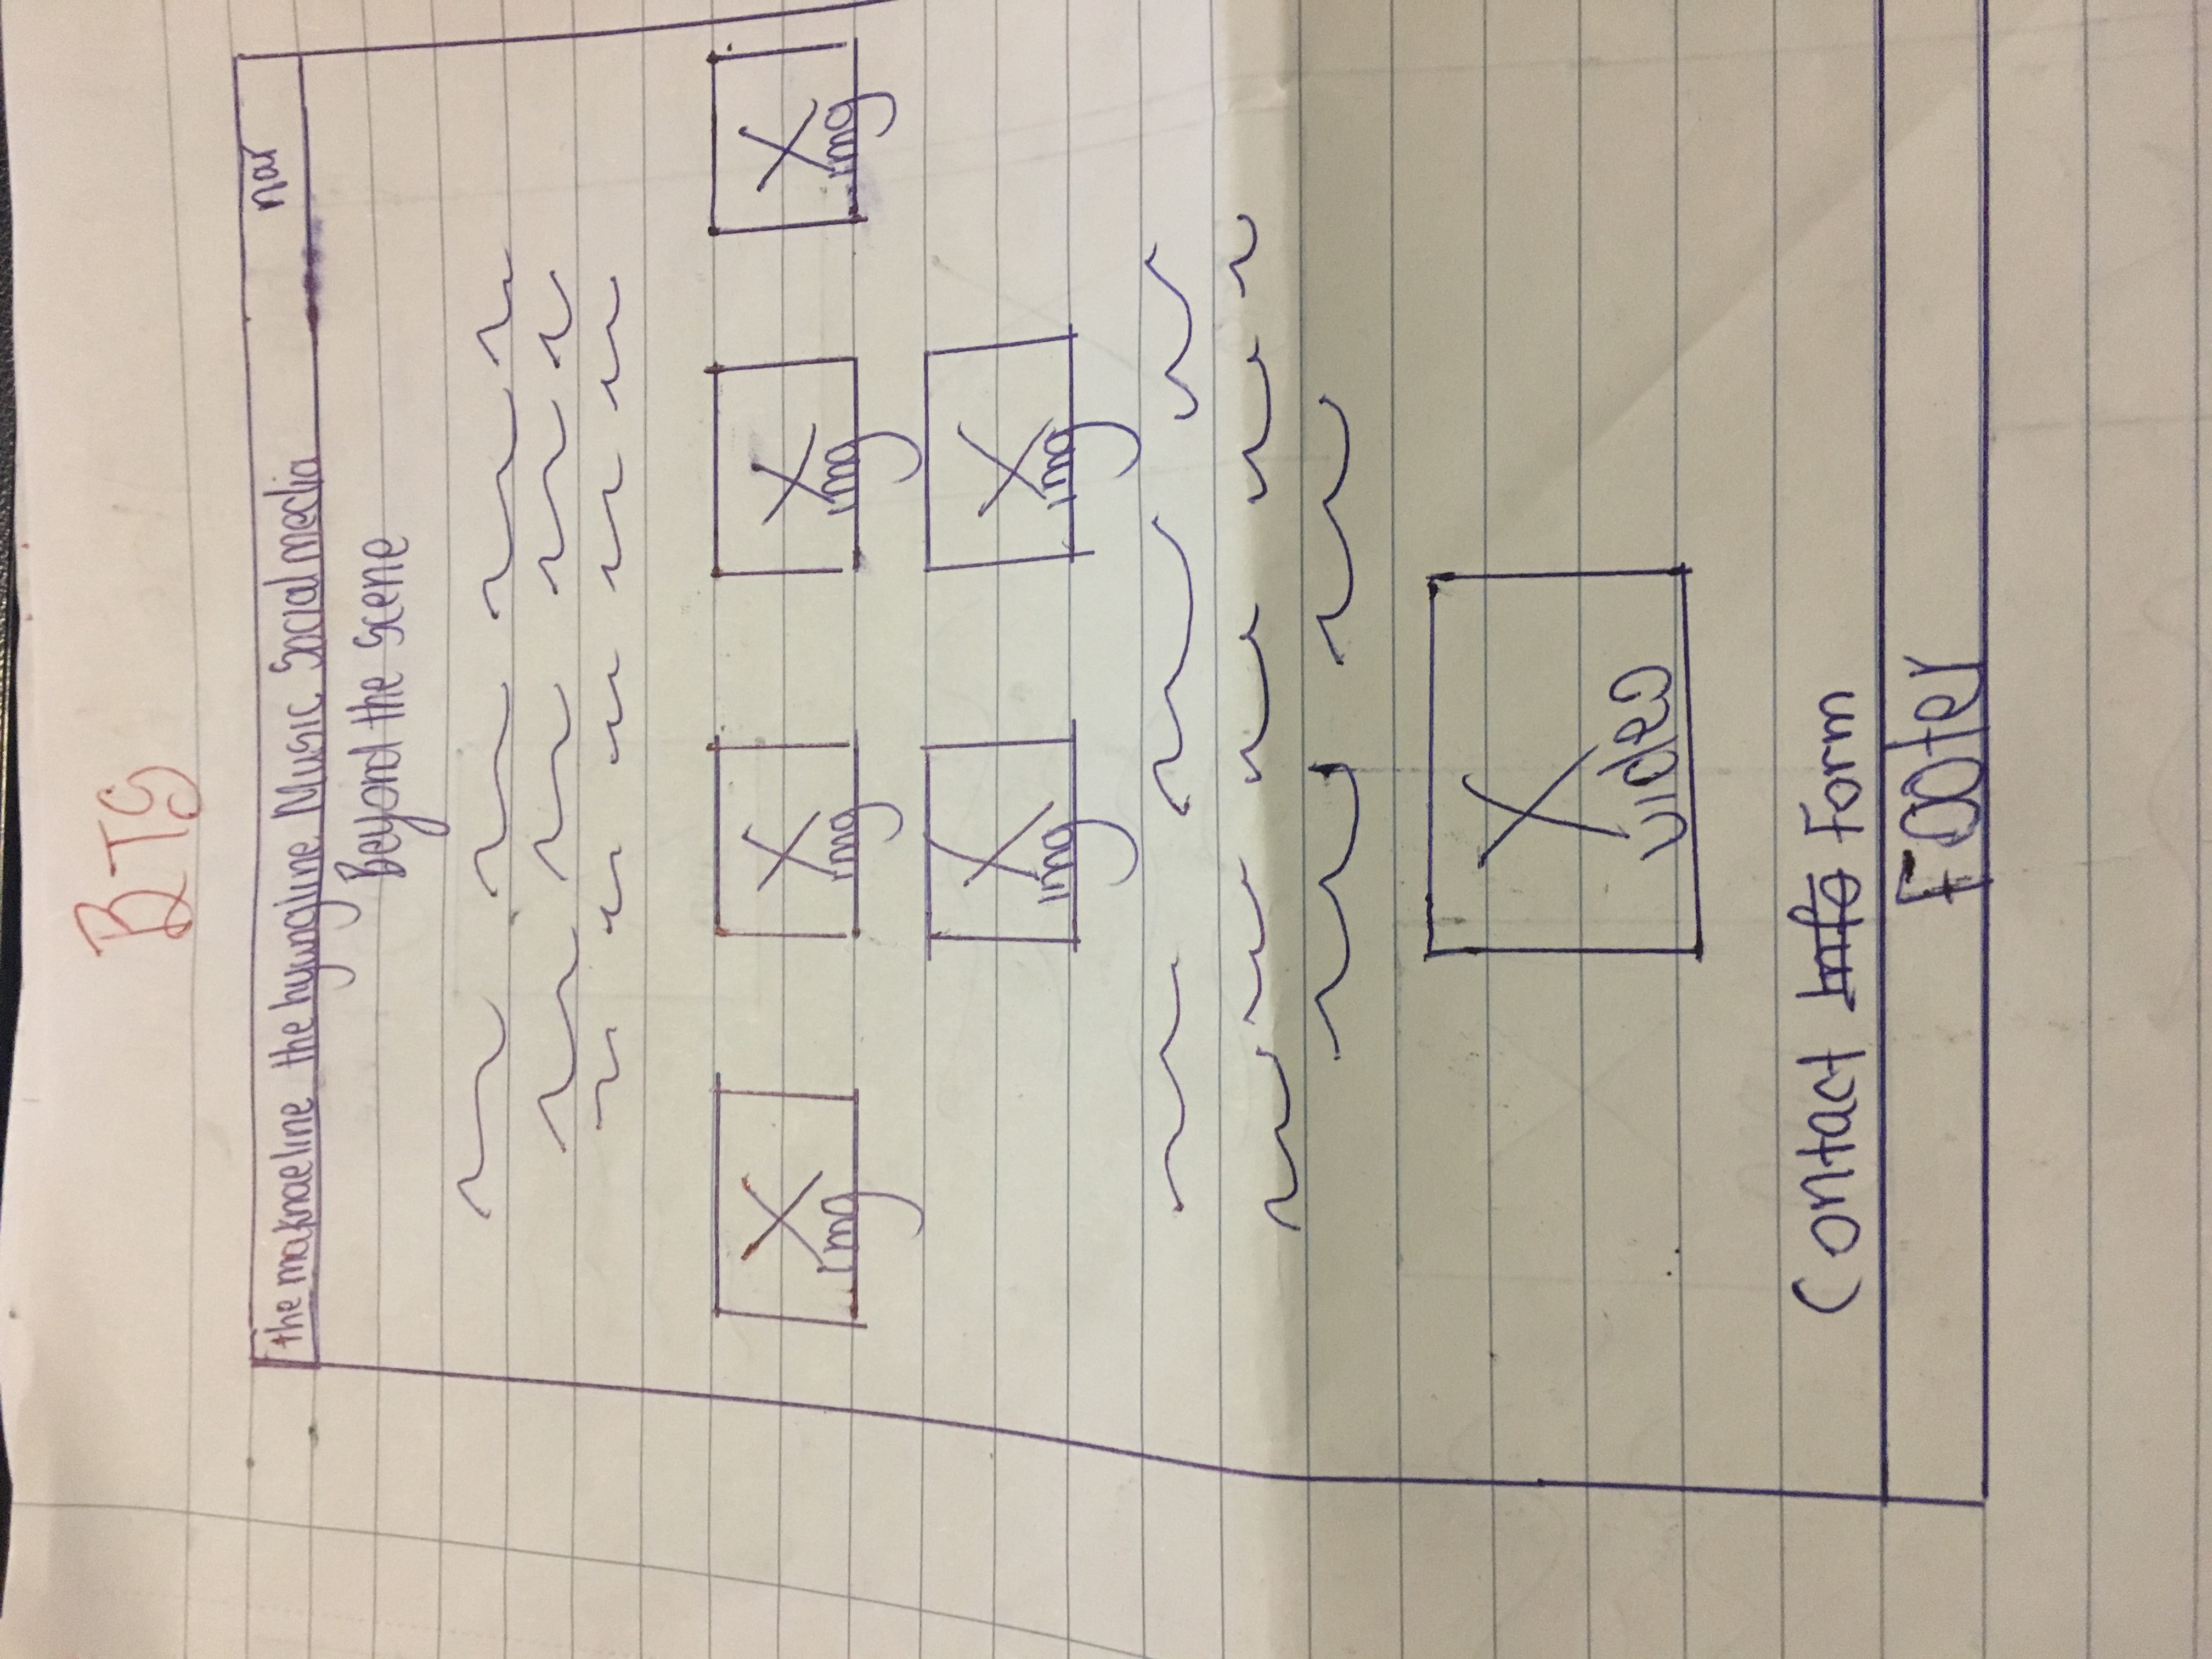 BTS
the maknaeline the hyungline Music Social media nav
Beyond the Scene
img img img img
img img
video
Contact Info Form
Footer